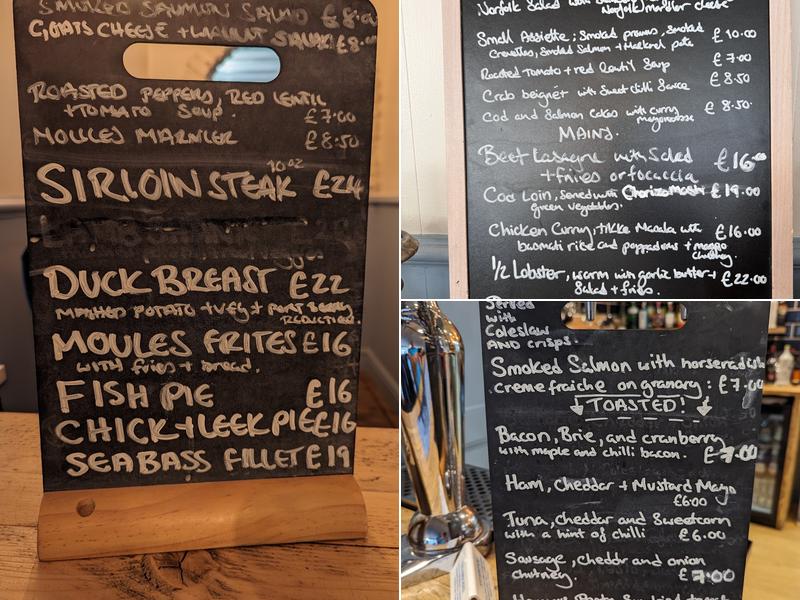 SMOKED SALMON SALAD £8.00
GOATS CHEESE + WALNUT SALAD £8.00
ROASTED PEPPERS, RED LENTIL
+ TOMATO SOUP. £7.00
MOULES MARNIER £8.50
SIRLOIN STEAK 10oz £24
DUCK BREAST £22
MASHED POTATO + VEG + PORT BERRY
REDUCTION.
MOULES FRITES £16
with fries + bread.
FISH PIE £16
CHICK + LEEK PIE £16
SEABASS FILLET £19
Norfolk Salad with
Small Assiette: Smoked prawns, smoked £10.00
Crevettes, Smoked Salmon + Mackerel pate
Roasted Tomato + red lentil Soup £7.00
Crab beignet with Sweet chilli Sauce £8.50
Cod and Salmon Cakes with curry £8.50
mayonnaise
MAINS.
Beef Lasagne with Salad £16.00
+ fries or focaccia
Cod Loin, Served with Chorizo Mash £19.00
green vegetables.
Chicken Curry, Tikke Masala with £16.00
basmati rice and poppadoms + mango
chutney.
1/2 Lobster, warm with garlic butter + £22.00
Salad + fries.
Served
with
Coleslaw
AND crisps.
Smoked Salmon with horseradish
creme fraiche on granary: £7.00
TOASTED!
Bacon, Brie, and cranberry
with maple and chilli bacon. £7.00
Ham, Cheddar + Mustard Mayo
£6.00
Tuna, cheddar and Sweetcorn
with a hint of chilli £6.00
Sausage, cheddr and onion
chutney. £7.00